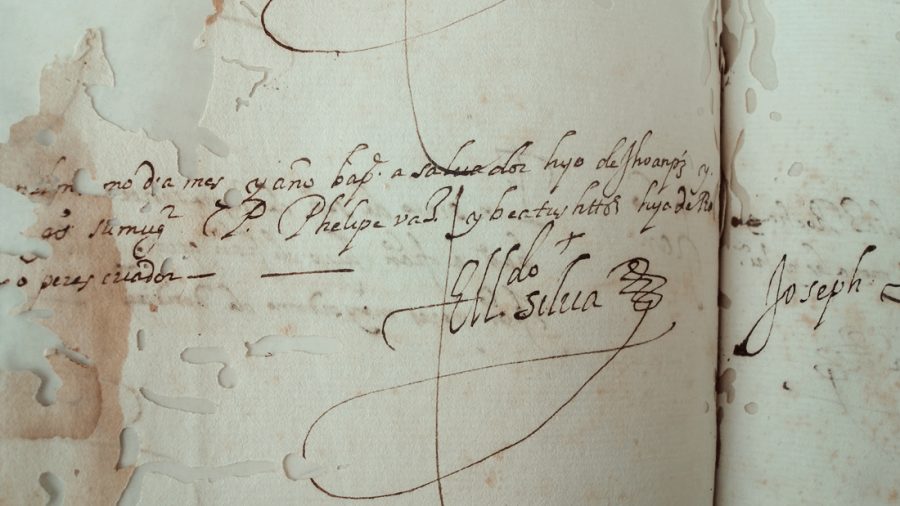 mo dia mes y año bapᵉ. a salvador hijo de Jhoan pˢ y
su mugʳ P. Phelipe vaꝉ y beatris hijade Ro
peres criador
Ell. do silva
Joseph